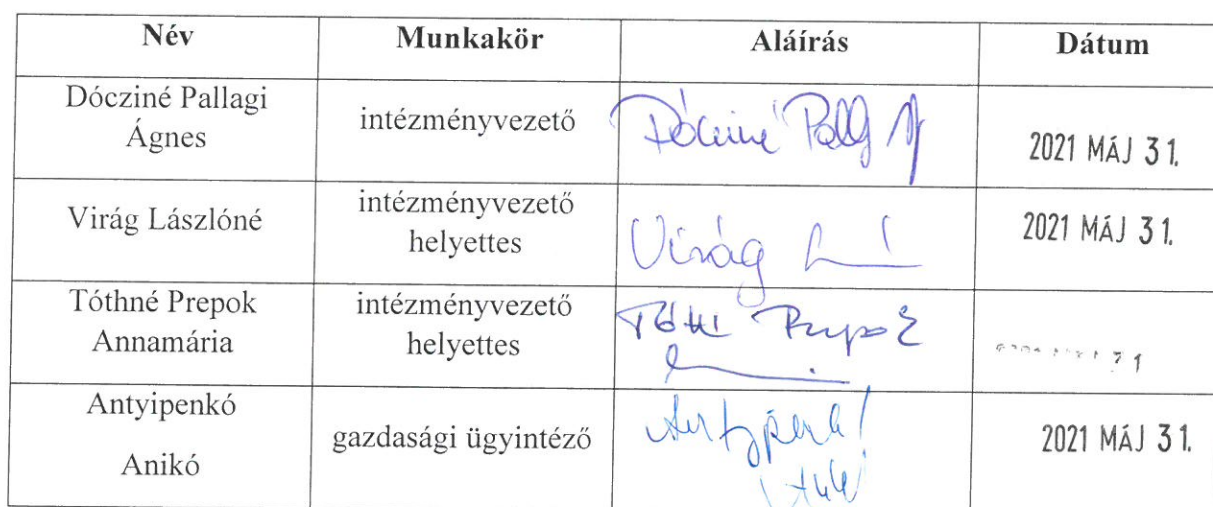 Név Munkakör Aláírás Dátum
Dócziné Pallagi
Ágnes
intézményvezető
Dócziné Pall
2021 MÁJ 31.
Virág Lászlóné
intézményvezető
helyettes
Virág
2021 MÁJ 31.
Tóthné Prepok
Annamária
intézményvezető
helyettes
Prepok
31
Antyipenkó
Anikó
gazdasági ügyintéző
2021 MÁJ 31.